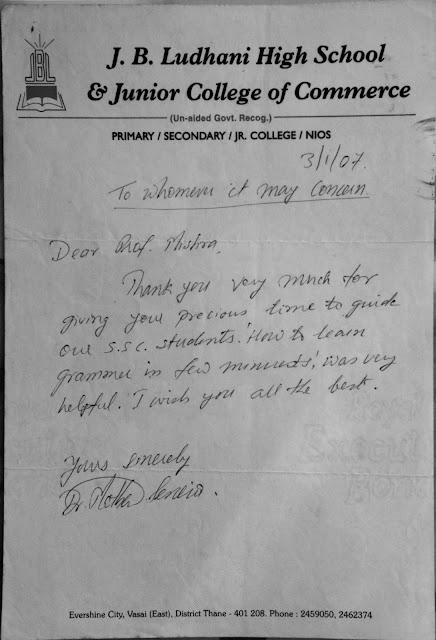 JBL
J. B. Ludhani High School
& Junior College of Commerce
(Un-aided Govt. Recog.)
PRIMARY / SECONDARY / JR. COLLEGE / NIOS
3/1/07.
To whomever it may concern
Dear Prof. Mishra,
Thank you very much for
giving your precious time to guide
our S.S.C. students. 'How to learn
grammer in few minuests', was very
helpful. I wish you all the best.
Yours sincerely
Dr.
Evershine City, Vasai (East), District Thane - 401 208. Phone : 2459050, 2462374